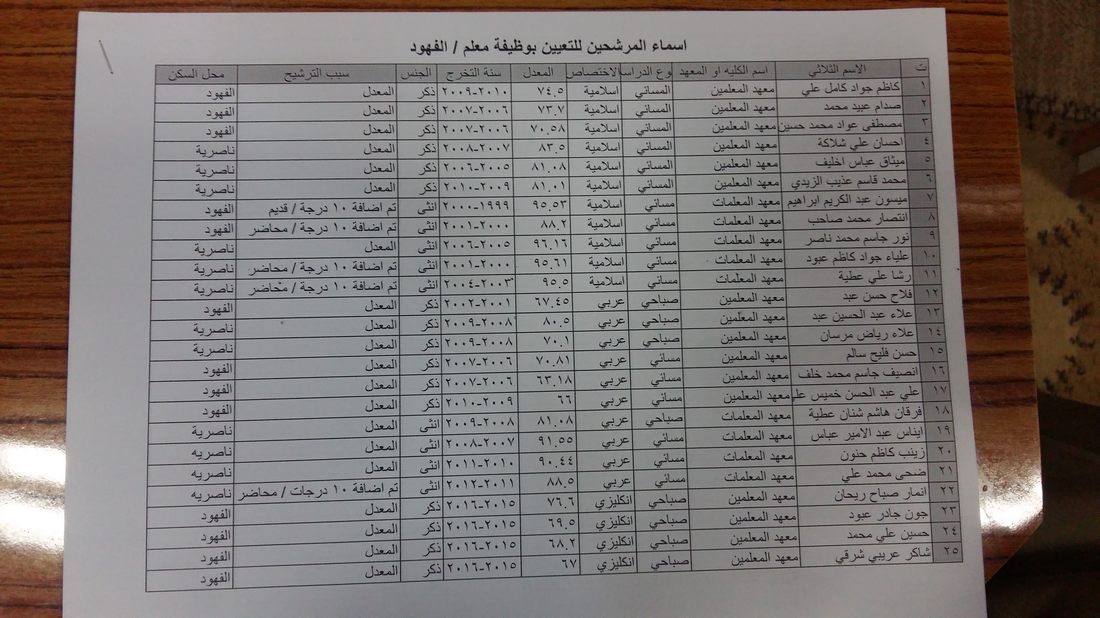 اسماء المرشحين للتعيين بوظيفة معلم / الفهود
ت الاسم الثلاثي اسم الكليه او المعهد وع الدراسا الاختصاص المعدل سنة التخرج الجنس سبب الترشيح محل السكن
١ كاظم جواد كامل علي معهد المعلمين المسائي اسلامية ٧٤.٥ ٢٠٠٩-٢٠١٠ ذكر المعدل الفهود
٢ صدام عبيد محمد معهد المعلمين المسائي اسلامية ٧٣.٧ ٢٠٠٦-٢٠٠٧ ذكر المعدل الفهود
٣ مصطفى عواد محمد حسين معهد المعلمين المسائي اسلامية ٧٠.٥٨ ٢٠٠٦-٢٠٠٧ ذكر المعدل الفهود
٤ احسان علي شلاكة معهد المعلمين المسائي اسلامية ٨٣.٥ ٢٠٠٧-٢٠٠٨ ذكر المعدل ناصرية
٥ ميثاق عباس اخليف معهد المعلمين المسائي اسلامية ٨١.٠٨ ٢٠٠٥-٢٠٠٦ ذكر المعدل ناصرية
٦ محمد قاسم عذيب الزيدي معهد المعلمين المسائي اسلامية ٨١.٠١ ٢٠٠٩-٢٠١٠ ذكر المعدل ناصرية
٧ ميسون عبد الكريم ابراهيم معهد المعلمات مسائي اسلامية ٩٥.٥٣ ١٩٩٩-٢٠٠٠ انثى تم اضافة ١٠ درجة / قديم الفهود
٨ انتصار محمد صاحب معهد المعلمات مسائي اسلامية ٨٨.٢ ٢٠٠٠-٢٠٠١ انثى تم اضافة ١٠ درجة / محاضر الفهود
٩ نور جاسم محمد ناصر معهد المعلمات مسائي اسلامية ٩٦.١٦ ٢٠٠٥-٢٠٠٦ انثى المعدل ناصرية
١٠ علياء جواد كاظم عبود معهد المعلمات مسائي اسلامية ٩٥.٦١ ٢٠٠٠-٢٠٠١ انثى تم اضافة ١٠ درجة / محاضر ناصرية
١١ رشا علي عطية معهد المعلمات مسائي اسلامية ٩٥.٥ ٢٠٠٣-٢٠٠٤ انثى تم اضافة ١٠ درجة / محاضر ناصرية
١٢ فلاح حسن عبد معهد المعلمين صباحي عربي ٦٧.٤٥ ٢٠٠١-٢٠٠٢ ذكر المعدل الفهود
١٣ علاء عبد الحسين عبد معهد المعلمين صباحي عربي ٨٠.٥ ٢٠٠٨-٢٠٠٩ ذكر المعدل ناصرية
١٤ علاء رياض مرسان معهد المعلمين صباحي عربي ٧٠.١ ٢٠٠٨-٢٠٠٩ ذكر المعدل ناصرية
١٥ حسن فليح سالم معهد المعلمين مسائي عربي ٧٠.٨١ ٢٠٠٦-٢٠٠٧ ذكر المعدل الفهود
١٦ انصيف جاسم محمد خلف معهد المعلمين مسائي عربي ٦٣.١٨ ٢٠٠٦-٢٠٠٧ ذكر المعدل الفهود
١٧ علي عبد الحسن خميس علي معهد المعلمين مسائي عربي ٦٦ ٢٠٠٩-٢٠١٠ ذكر المعدل الفهود
١٨ فرقان هاشم شنان عطية معهد المعلمات صباحي عربي ٨١.٠٨ ٢٠٠٨-٢٠٠٩ انثى المعدل ناصرية
١٩ ايناس عبد الامير عباس معهد المعلمات مسائي عربي ٩١.٥٥ ٢٠٠٧-٢٠٠٨ انثى المعدل ناصريه
٢٠ زينب كاظم حنون معهد المعلمات مسائي عربي ٩٠.٤٤ ٢٠١٠-٢٠١١ انثى المعدل ناصريه
٢١ ضحى محمد علي معهد المعلمات مسائي عربي ٨٨.٥ ٢٠١١-٢٠١٢ انثى تم اضافة ١٠ درجات / محاضر ناصريه
٢٢ انمار صباح ريحان معهد المعلمين صباحي انكليزي ٧٦.٦ ٢٠١٥-٢٠١٦ ذكر المعدل الفهود
٢٣ جون جادر عبود معهد المعلمين صباحي انكليزي ٦٩.٥ ٢٠١٥-٢٠١٦ ذكر المعدل الفهود
٢٤ حسين علي محمد معهد المعلمين صباحي انكليزي ٦٨.٢ ٢٠١٥-٢٠١٦ ذكر المعدل الفهود
٢٥ شاكر عريبي شرقي معهد المعلمين صباحي انكليزي ٦٧ ٢٠١٥-٢٠١٦ ذكر المعدل الفهود